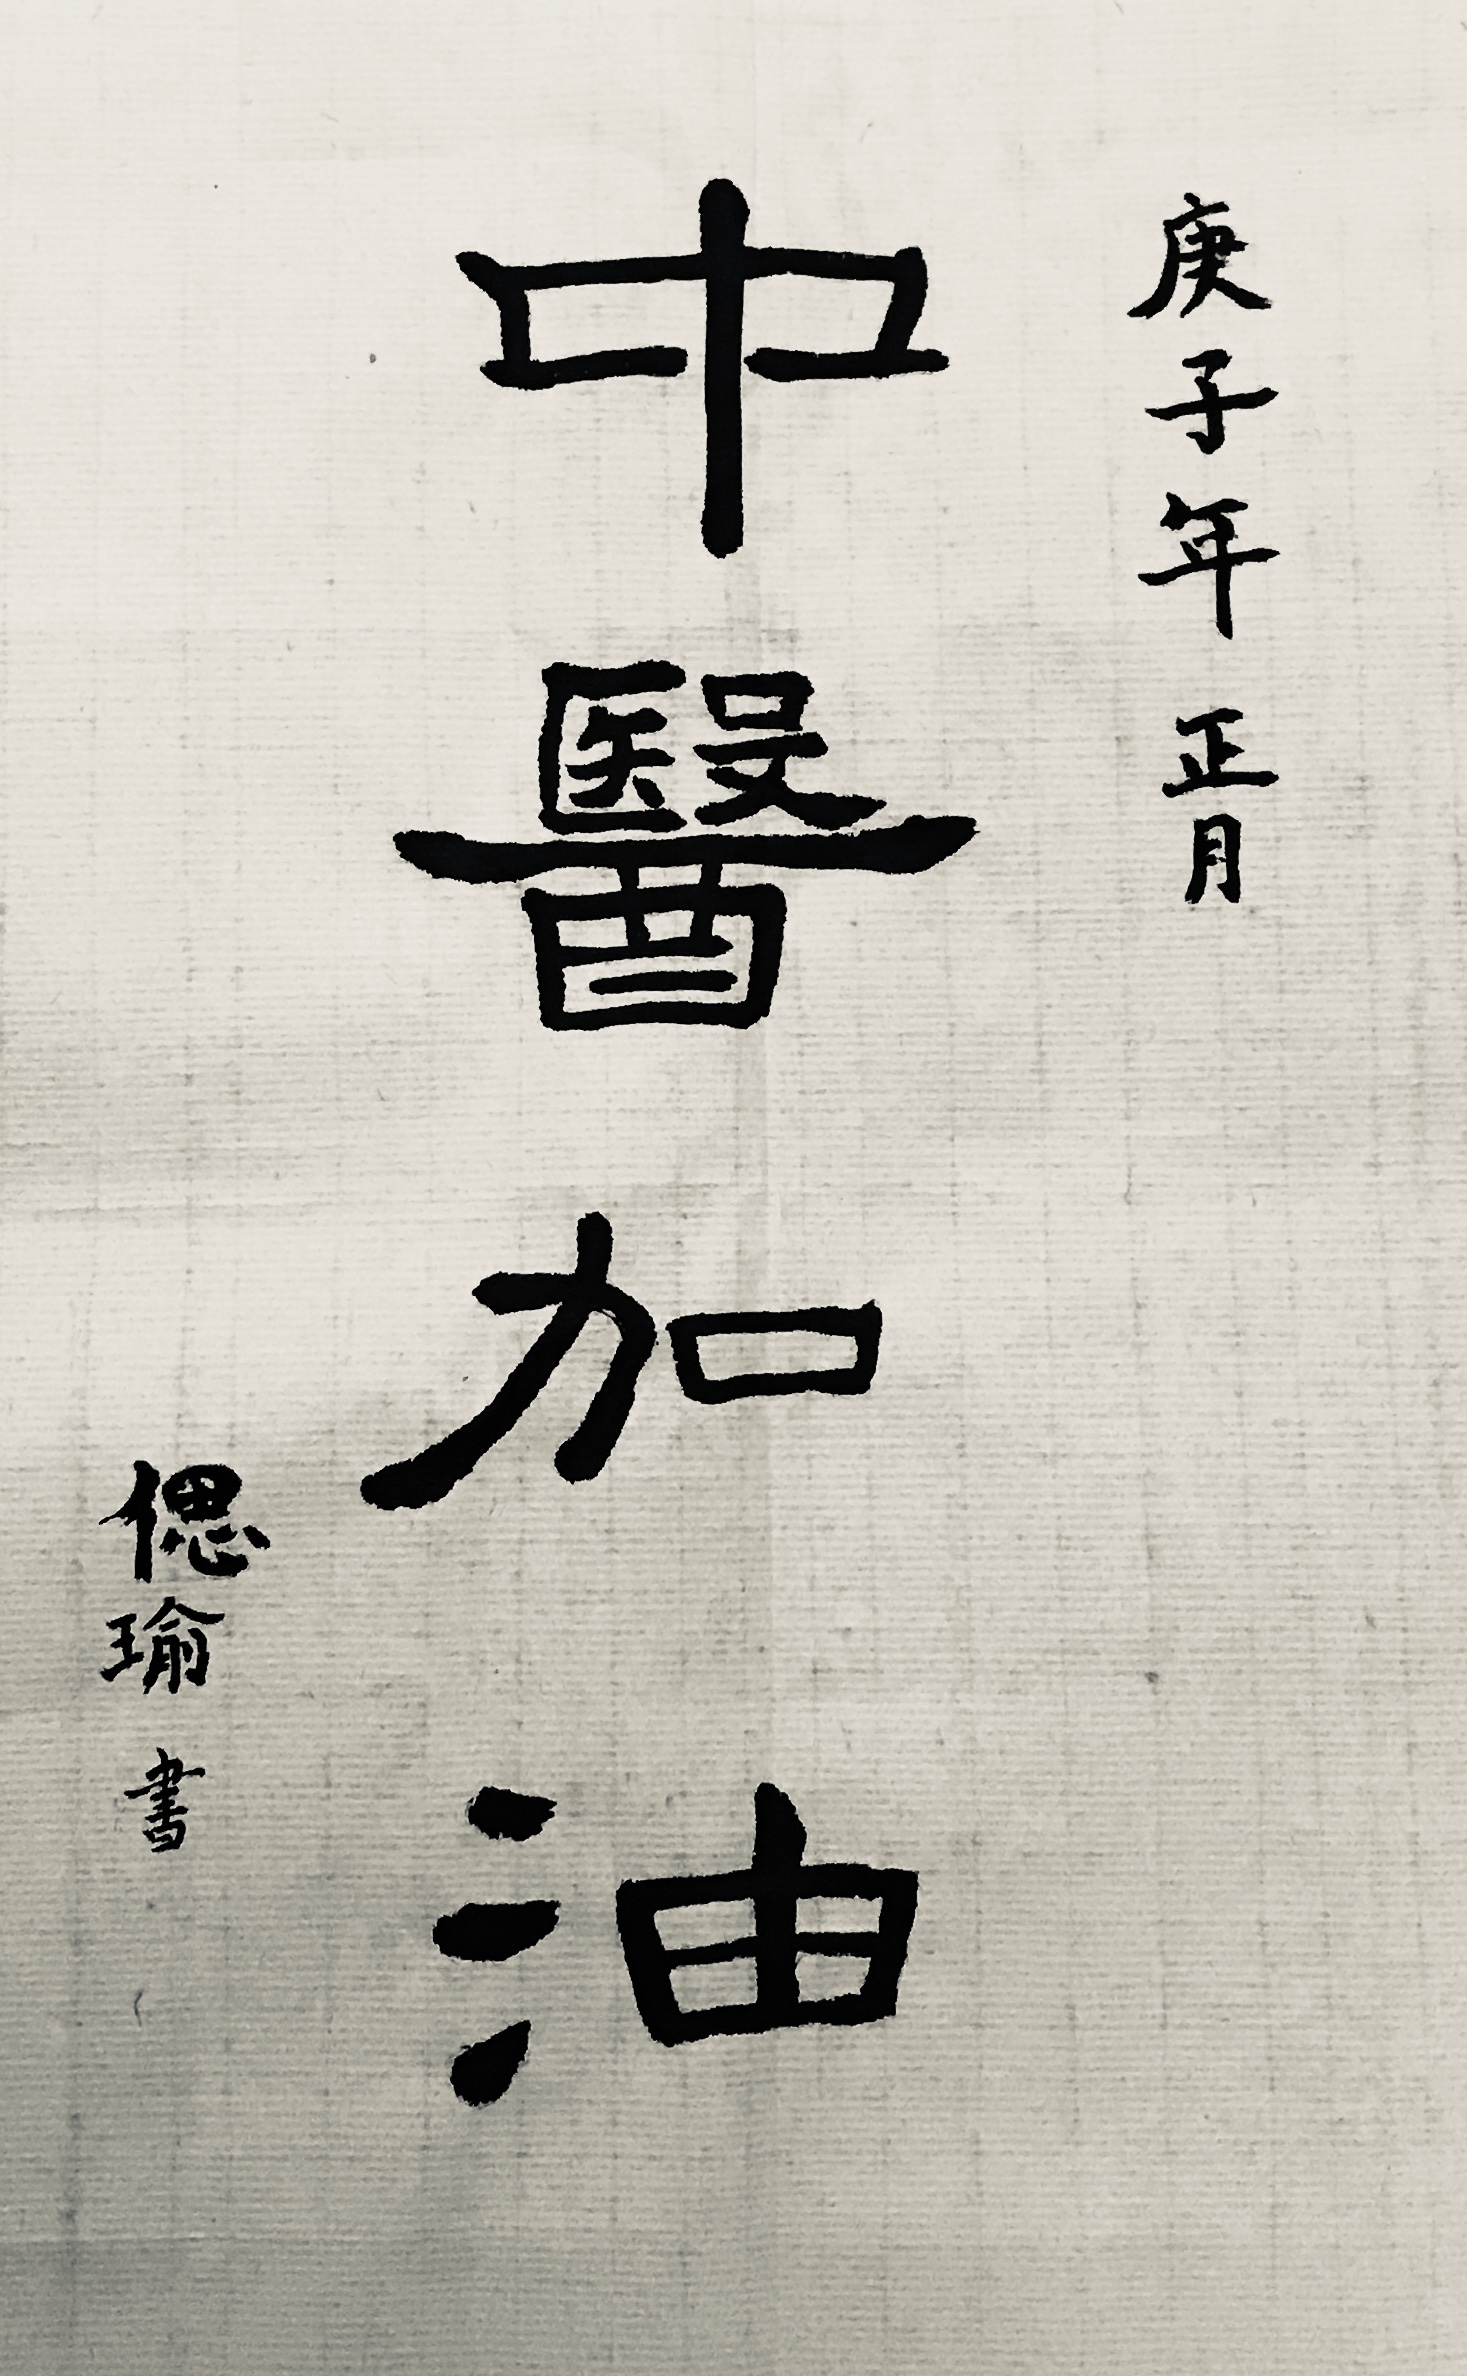 庚子年 正月
中醫加油
偲瑜 書